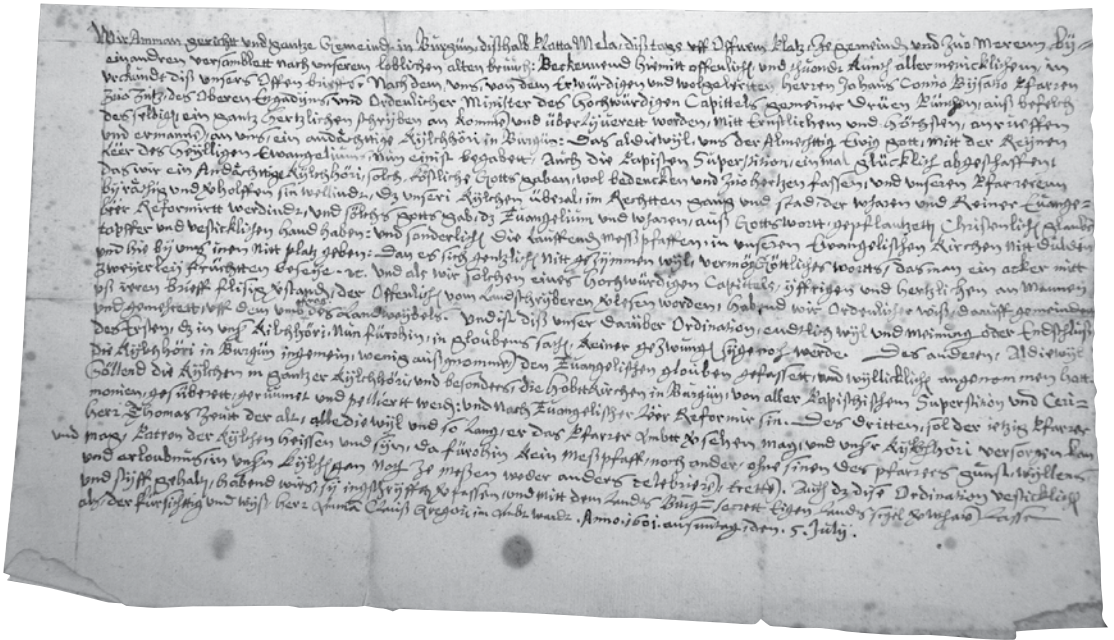 Wir Amman gericht und gantze Gemeind, in Burgün, disthalb Platta Mela, diß tags uff Offnem Platz, Ze gemeind und Zuo Merenn, by=
einandren versamblett nach unserem loblichen alten bruch: Beckennend hiemitt offenlich und thuondt kundt aller menicklichen, in
urckundt diß unsers Offen brieffs: Nach dem, uns, von dem Erwürdigen und wolgelerten, herren Johans Conno Bysatio Pfarrer
Zuo Zutz, des Oberen Engadyns, und Ordenlicher Minister des Hochwürdigen Capittels gemeiner Dryen Bündten, auß befelch
desselbigen ein gantz hertzlichen schryben an komen, und überlyverett worden, Mitt Ernstlichem und Höchsten, an rueffen
und ermanen, an uns, ein andächtige Kylchhöri in Burgün: Das aldiewyl, uns der Almechtig Ewig gott, mitt der Reynen
Leer des heylligen Ewangelium, Nun einist begabett, Auch die Papisten Superstition, einmal glücklich abgeschaffent
Das wir ein Andächtige Kylchhöri, solch köstliche Gotts gaben, wol bedencken und Zuo hertzen fassen, und unseren Pfarreren
byrätig und bholffen sin wellindt, dz unseri Kylchen überal, im Rechtten gang und stad, der wharen und Reiner Euange=
leer Reformirtt werdindt, und solchs gotts gab, dz Euangelium und wharen, auß Gottswortt, gepflantzett, Christenlich glauben
tapffer und vesticklichen hand haben: und sonderlich die lauffende Meßpfaffen, in unseren Ewangelischen Kirchen nitt dulden
und hie by uns inen nitt platz geben: Dan es sich gentzlich Nitt gezymmen wyl, vermög Göttliches worts, das man ein acker mitt
zweyerley früchtten beseye. etc. Und als wir solchen eines Hochwürdigen Capittels, yffrigen und hertzlichen an Mannen
uß iren Brieff flisig verstanden, der Offenlich vom Landschryberen verlesen worden, habend wir Ordenlicher wiß, daruff gemeindett
und gemehrett, uff dem umbfrag des Landtweybels. Und ist diß unser darüber Ordination, endtlich wyl und meinung oder Endtschluß
des Ersten, dz in unser Kilchhöri, Nun fürohin, in gloubens sach, Keiner gezwungen sige noch werde. Des anderen, Aldiewyl
die Kylchhöri in Burgün ingemein, wenig außgnommen, den Euangelischen glouben gefassett, und wyllicklich angenommen hatt
Söllend die Kylchen in gantzer Kylchhöri, und besonders, die Hobttkirchen in Burgün, von aller Papistischem Superstition und Ceri=
monien, gesüberett, gerümet und pelliertt werden: und nach Euangelischer Leer Reformirt sin. Des dritten, sol der ietzig Pfarrer
herr Thomas Zeuth der alt, alle die wyl und so lang, er das Pfarrer Ambtt versehen mag, und unser Kylchhöri versorgen kan
und mag, Patron der Kylchen heissen und syn, Da fürohin Kein Meßpfaff, noch ander, ohne sinen des pfarrers gunst, wyllenn
und erloubnus, in unsren Kylchen gan noch Ze messen weder anders celebrieren, trette. Auch dz dise Ordination vesticklich
und styff gehaltn, habend wirs, in ingschryfft verfassen, und mitt dem Landts eigen Landts sigel verwharen lassen
als, der fürsichtig und wyß herr Amma Clauß Gregori, im Ambt ward. Anno. 1601. am suntag, den. 5. July.